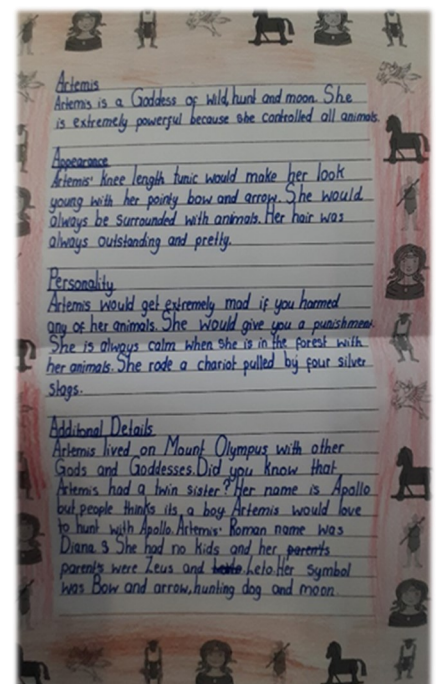 Artemis
Artemis is a Goddess of wild, hunt and moon. She
is extremely powerful because she controlled all animals.
Appearance
Artemis' knee length tunic would make her look
young with her pointy bow and arrow. She would
always be surrounded with animals. Her hair was
always outstanding and pretty.
Personality
Artemis would get extremely mad if you harmed
any of her animals. She would give you a punishment.
She is always calm when she is in the forest with
her animals. She rode a chariot pulled by four silver
stags.
Additonal Details
Artemis lived on Mount Olympus with other
Gods and Goddesses. Did you know that
Artemis had a twin sister? Her name is Apollo
but people thinks its a boy. Artemis would love
to hunt with Apollo. Artemis' Roman name was
Diana. She had no kids and her parents
parents were Zeus and Leto. Her symbol
was Bow and arrow, hunting dog and moon.